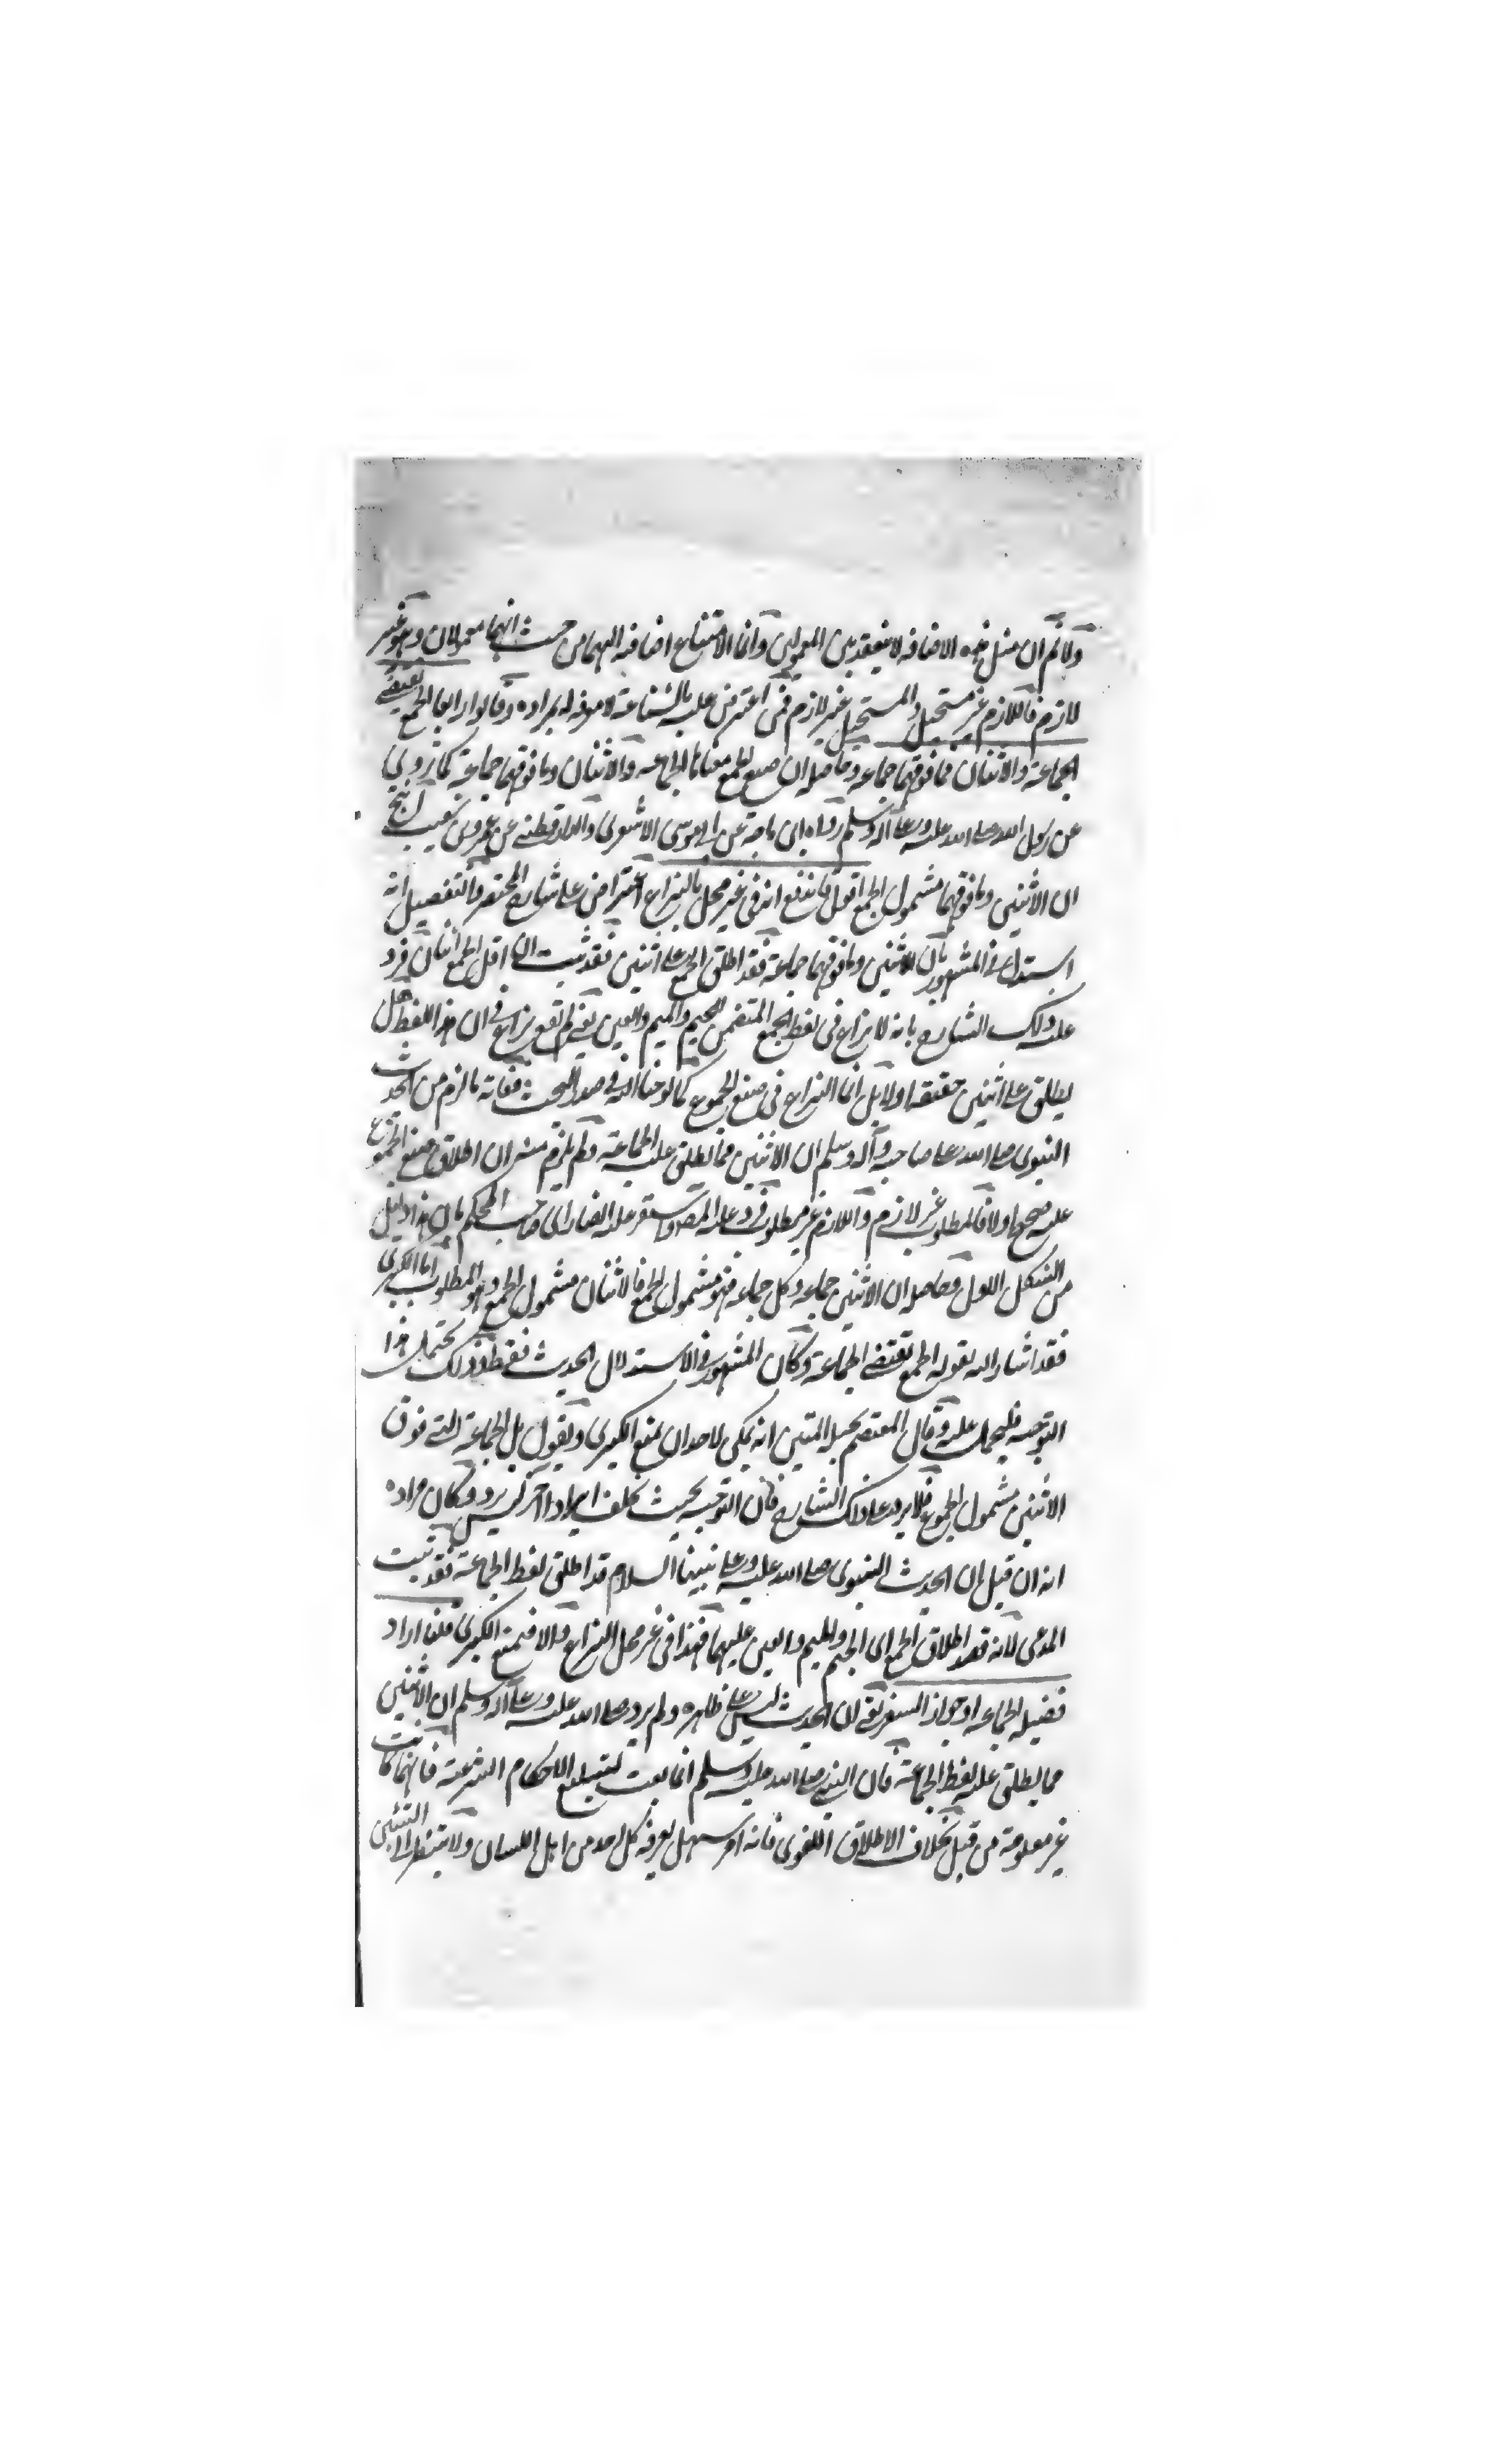 ولا نم ان مثل هذه الاضافة لا ينعقد بين المعمولين وانما الامتناع اضافة اليهما من حيث انهما معمولان وهو غير
لازم فاللازم غير مستحيل والمستحيل غير لازم فمن اعترض عليه بالشناعة لا معرفة له بمراده وقالوا رابعا الجمع يقتضي
الجماعة والاثنان فما فوقهما جماعة وحاصله ان صيغ الجمع معناها الجماعة والاثنان وما فوقهما جماعة كما روى
عن رسول الله صلى الله عليه وعلى آله وسلم رواه ابن ماجة عن ابي موسى الاشعري والدارقطني عن عمرو بن شعيب
ان الاثنين وما فوقهما مشمول الجمع اقول فاندفع انه في غير محل النزاع اعتراض على شارح المختصر والتفصيل انه
استدل في المشهور بان الاثنين وما فوقهما جماعة فقد اطلق الجمع على اثنين فقد ثبت ان اقل الجمع اثنان فرد
عليه ذلك الشارح بانه لا نزاع في لفظ الجمع المتضمن للجيم والميم والعين يعني لم يقع نزاع في ان هذا اللفظ هل
يطلق على اثنين حقيقة او لا بل انما النزاع في صيغ الجموع كما لوحنا اليه في صدر المبحث فغاية ما لزم من الحديث
النبوي صلى الله على صاحبه وآله وسلم ان الاثنين مما يطلق عليه الجماعة ولم يلزم منه ان اطلاق صيغ الجموع
عليه صحيح او لا فالمطلوب غير لازم واللازم غير مطلوب فرد عليه المص واستقر عليه ايضا راي صاحب المحكم بان هذا دليل
من الشكل الاول وحاصله ان الاثنين جماعة وكل جماعة فهو مشمول الجمع فالاثنان مشمول الجمع وهو المطلوب اما الكبرى
فقد اشار اليه بقوله الجمع يقتضي الجماعة وكان المشهور في الاستدلال الحديث فقط وذلك يحتمل هذا
التوجيه فليحمل عليه وقال المعتصم بحبله المتين انه يمكن لاحد ان يمنع الكبرى ويقول بل الجماعة التي فوق
الاثنين مشمول الجموع فلا يرد على ذلك الشارح فان التوجيه بحيث يخلف ايراد آخر ليس برد وكان مراده
انه ان قيل ان الحديث النبوي صلى الله عليه وعلى نبينا السلام قد اطلق لفظ الجماعة فقد ثبت
المدعى لانه قصد اطلاق الجمع اي الجيم والميم والعين عليهما فهذا في غير محل النزاع والا فيمنع الكبرى قلنا اراد
فضيلة الجماعة او جواز السفر يعني ان الحديث ليس على ظاهره ولم يرد صلى الله عليه وعلى آله وسلم ان الاثنين
مما يطلق عليه لفظ الجماعة فان النبي صلى الله عليه وسلم انما بعث لتبليغ الاحكام الشرعية فانها كانت
غير معلومة من قبل بخلاف الاطلاق اللغوي فانه امر سهل يعرفه كل احد من اهل اللسان ولا يفتقر الى